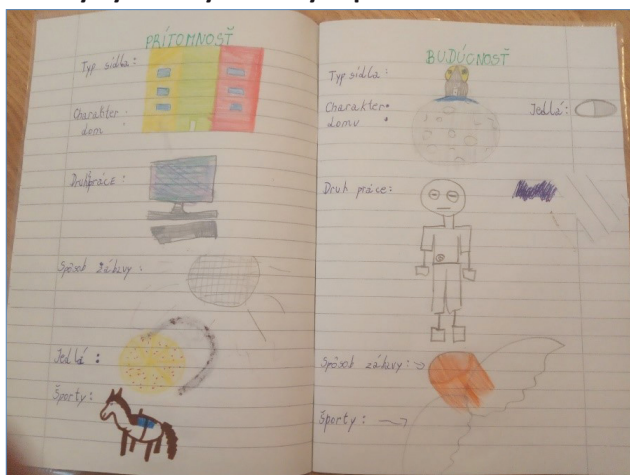 PRÍTOMNOSŤ
Typ sídla:
Charakter
domu
Druh práce:
Spôsob zábavy:
Jedlá:
Športy:
BUDÚCNOSŤ
Typ sídla:
Charakter
domu
Jedlá:
Druh práce:
Spôsob zábavy:
Športy: